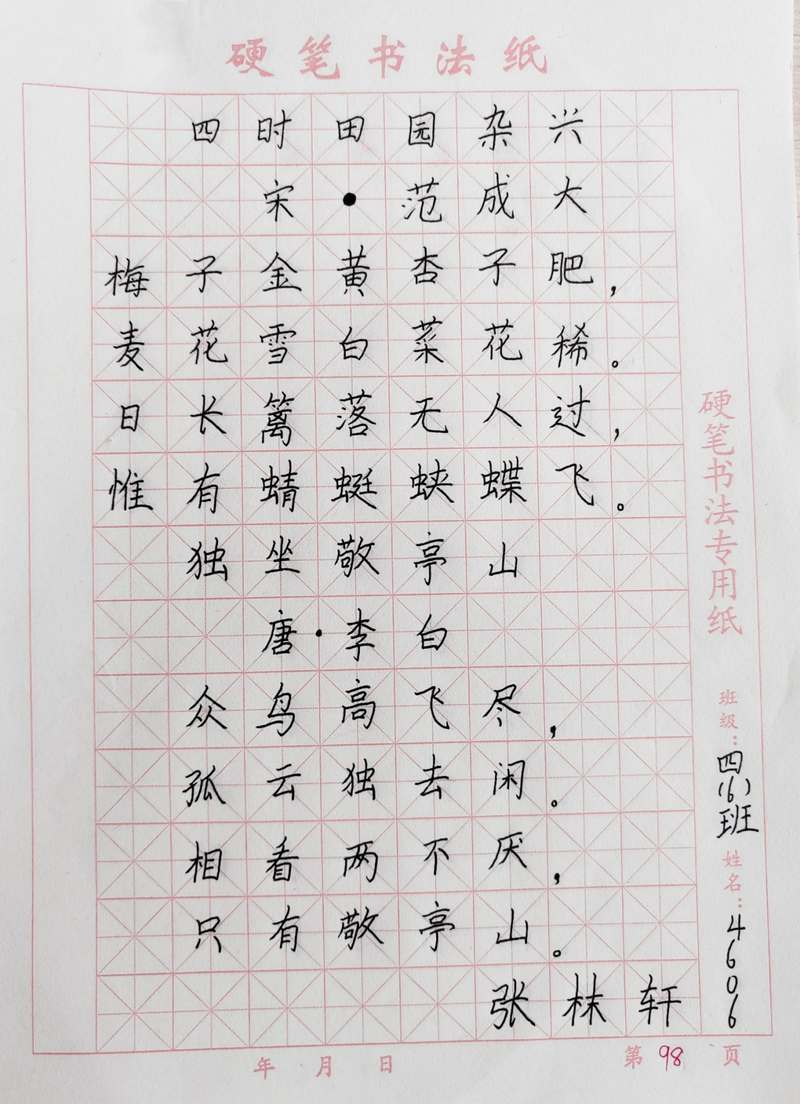 硬笔书法纸
四时田园杂兴
宋·范成大
梅子金黄杏子肥，
麦花雪白菜花稀。
日长篱落无人过，
惟有蜻蜓蛱蝶飞。
独坐敬亭山
唐·李白
众鸟高飞尽，
孤云独去闲。
相看两不厌，
只有敬亭山。
张林轩
硬笔书法专用纸
班级：四(6)班
姓名：4606
年 月 日
第98页